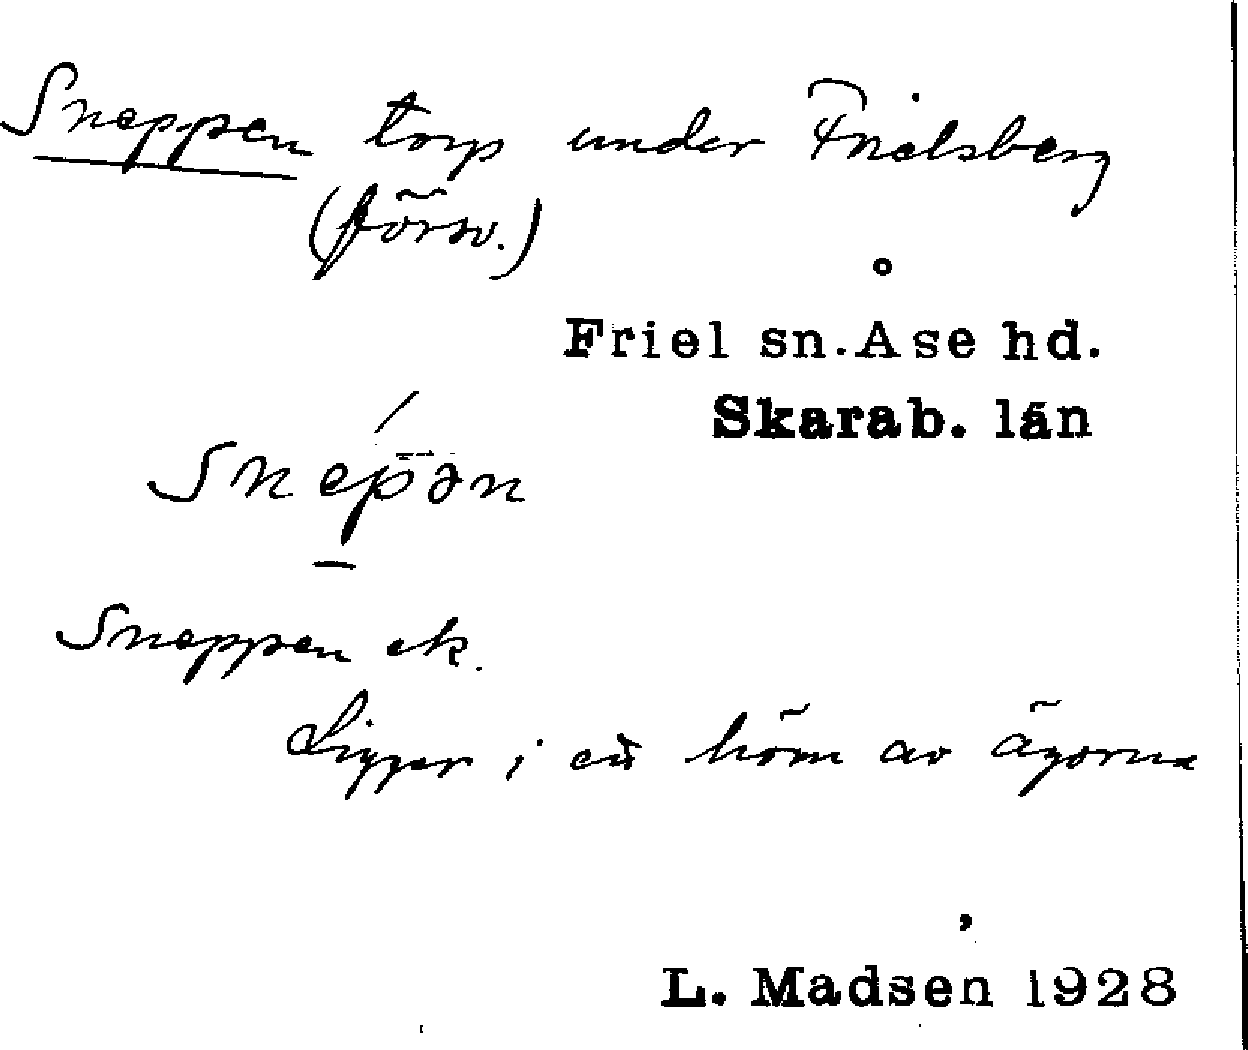 Sneppen torp under Frielsberg
(försv.)
Friel sn. Åse hd.
Skarab. län
Snépən
Sneppen ek.
Ligger i ett hörn av ägorna
L. Madsen 1928